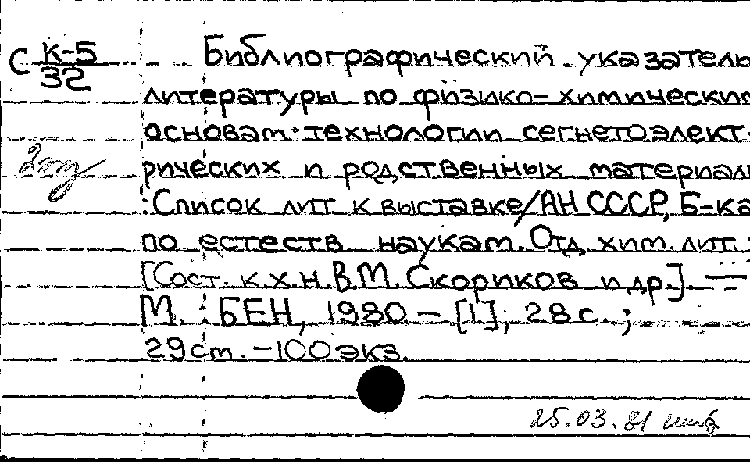 С К-5/32 Библиографический указатель
литературы по физико-химическим
основам технологии сегнетоэлект-
рических и родственных материал
2 экз
: Список лит. к выставке/АН СССР, Б-ка
по естеств. наукам. Отд. хим. лит.;
[Сост. к.х.н. В.М. Скориков и др.]. —
М. : БЕН, 1980 – [1], 28 с. ;
29 см. – 100 экз.
25.03.81